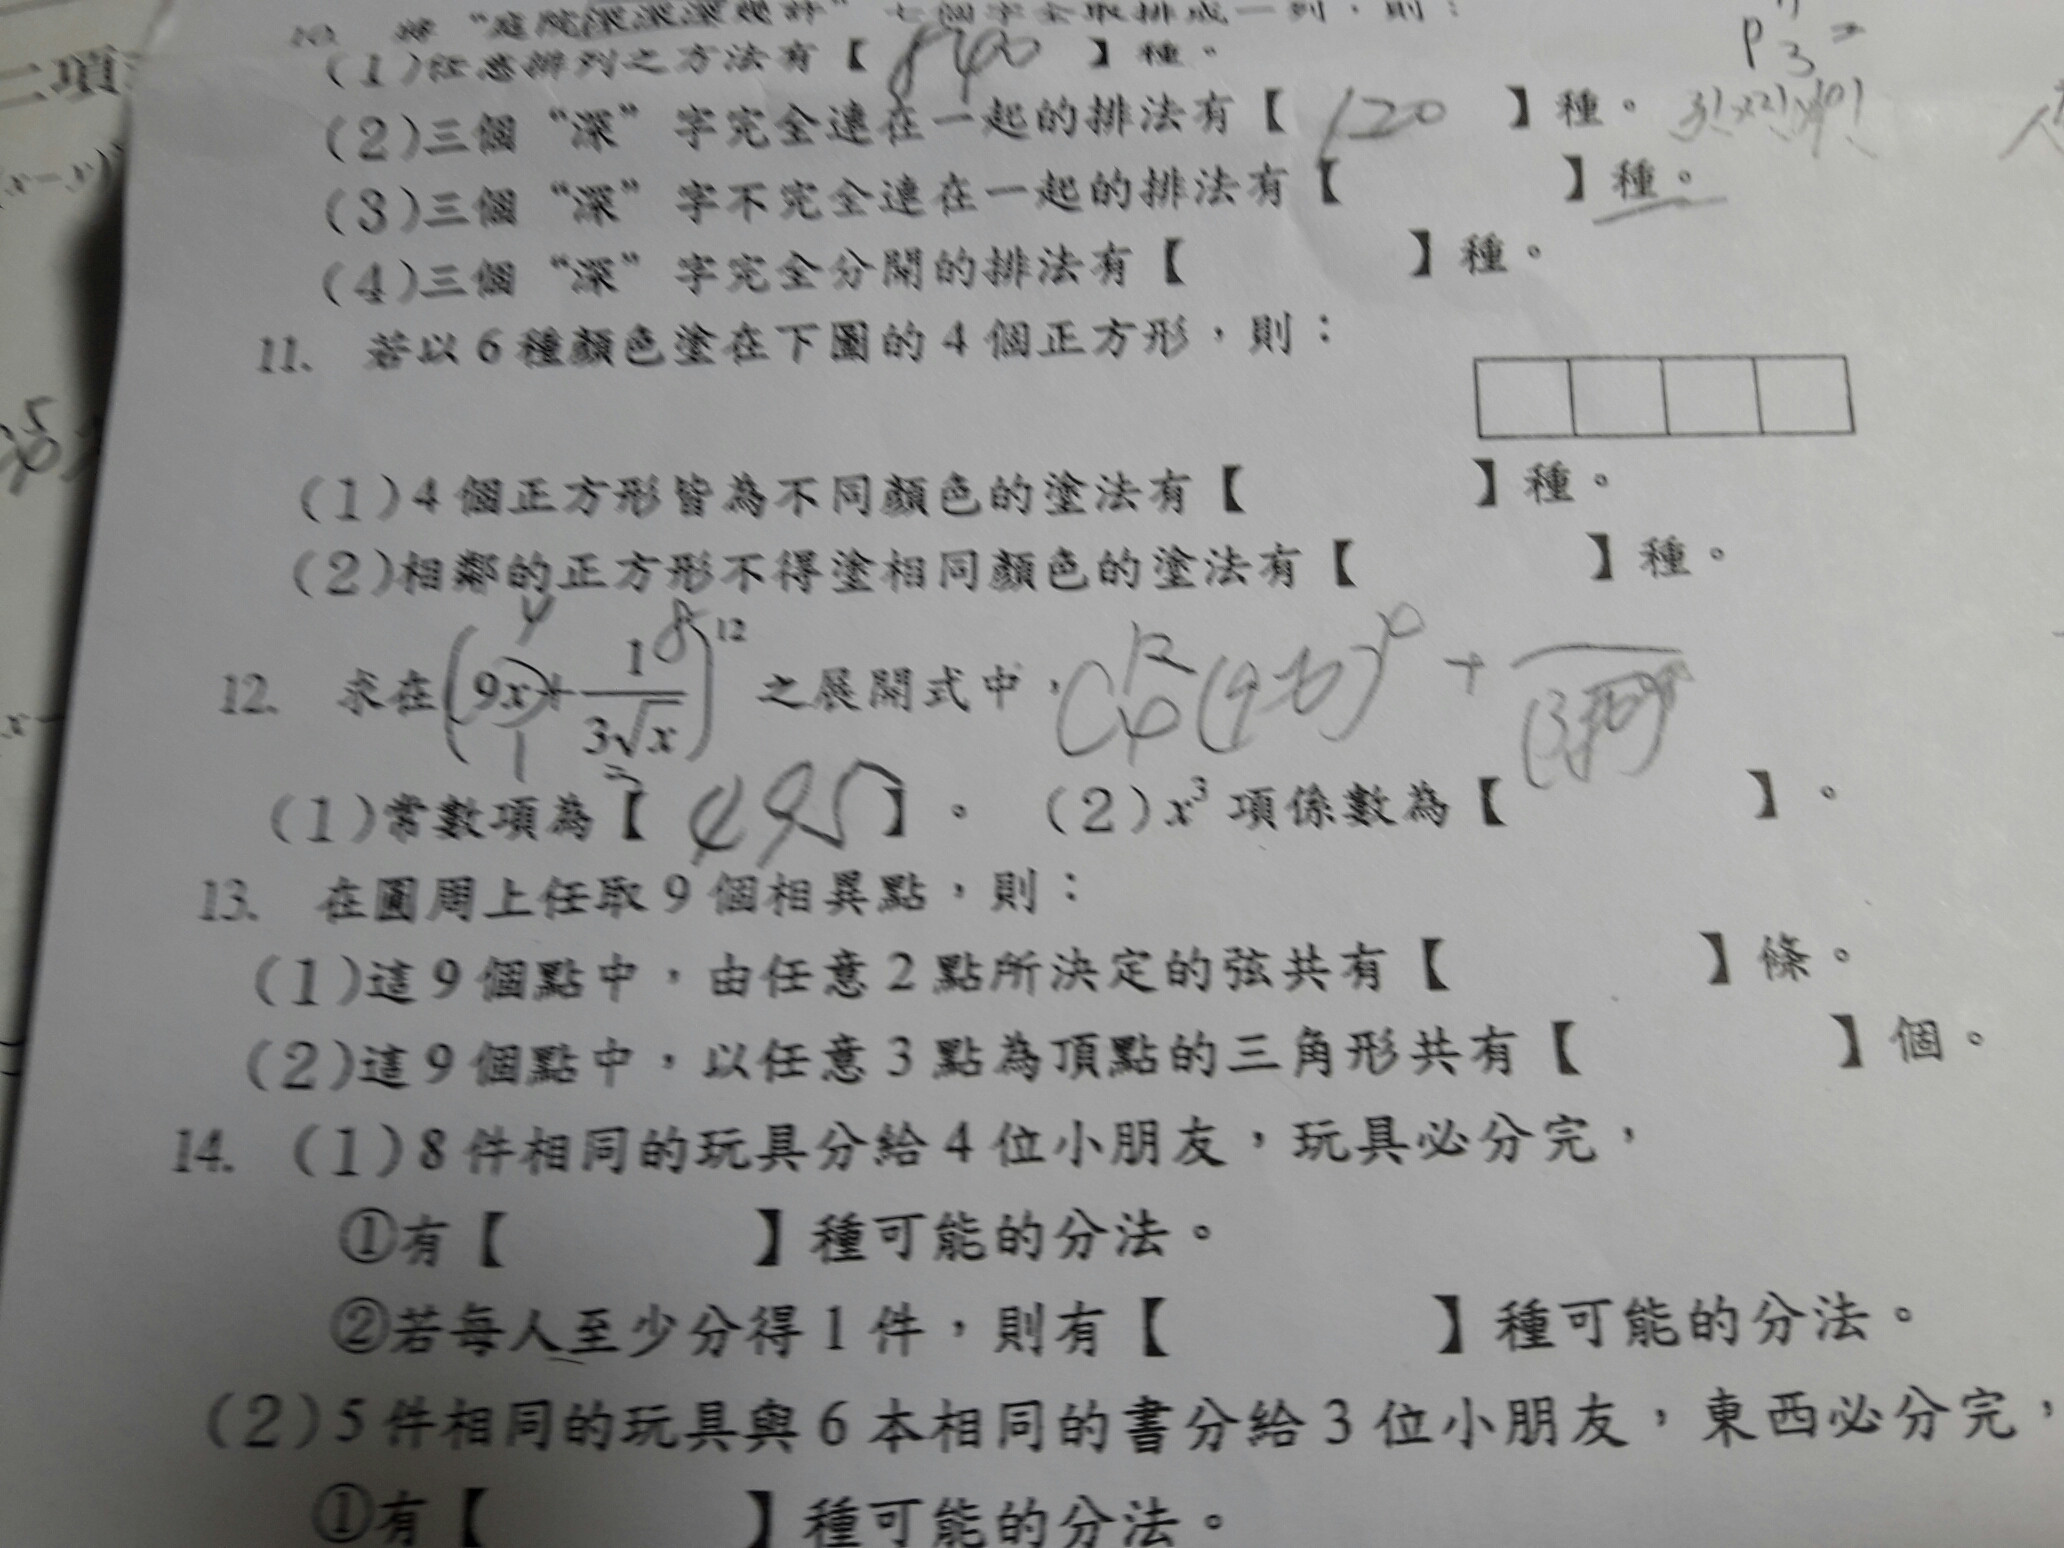 二項
10. 將“庭院深深深幾許”七個字全取排成一列，則：
P 3 =
(1)任意排列之方法有【 840 】種。
(2)三個“深”字完全連在一起的排法有【 120 】種。 3!×2!×
(x-y)
(3)三個“深”字不完全連在一起的排法有【 】種。
(4)三個“深”字完全分開的排法有【 】種。
11. 若以6種顏色塗在下圖的4個正方形，則：
(1)4個正方形皆為不同顏色的塗法有【 】種。
(2)相鄰的正方形不得塗相同顏色的塗法有【 】種。
4 8
12. 求在(9x+1/3√x)^12之展開式中，
(1)常數項為【 495 】。 (2)x³項係數為【 】。
13. 在圓周上任取9個相異點，則：
(1)這9個點中，由任意2點所決定的弦共有【 】條。
(2)這9個點中，以任意3點為頂點的三角形共有【 】個。
14. (1)8件相同的玩具分給4位小朋友，玩具必分完，
①有【 】種可能的分法。
②若每人至少分得1件，則有【 】種可能的分法。
(2)5件相同的玩具與6本相同的書分給3位小朋友，東西必分完，
①有【 】種可能的分法。